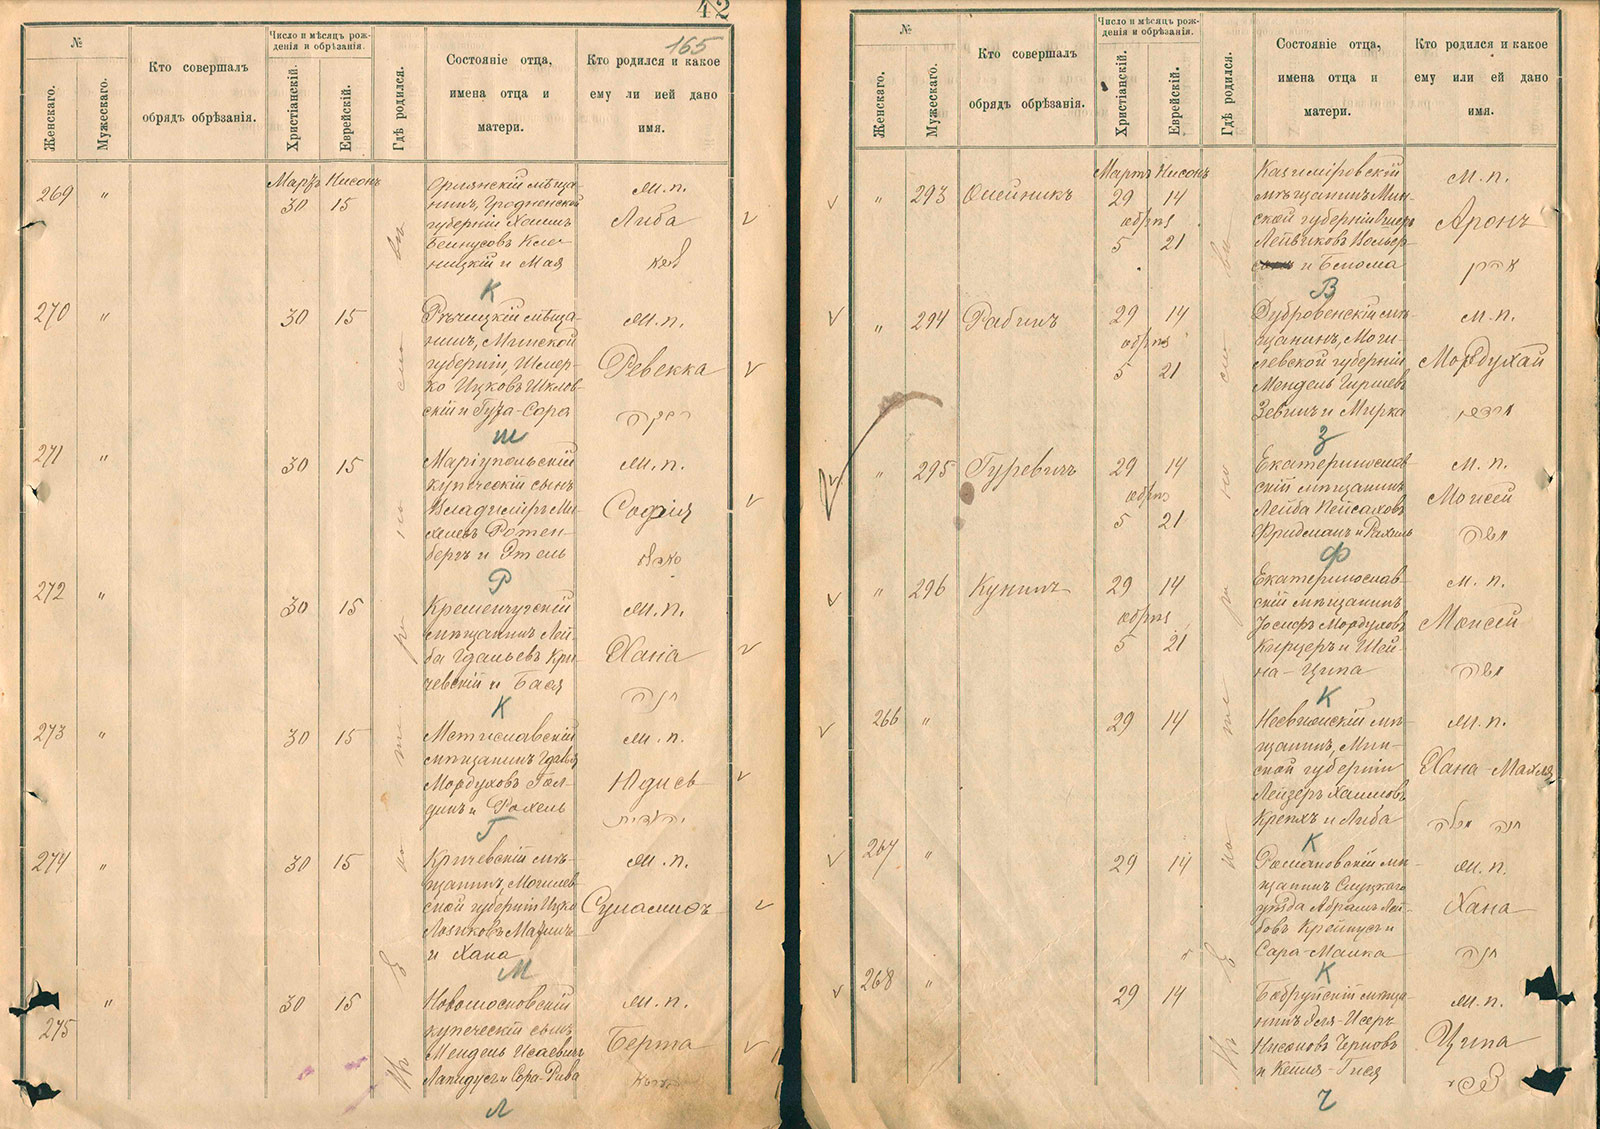 42
165
№
Женскаго.
Мужескаго.
Кто совершалъ
обрядъ обрѣзанія.
Число и мѣсяцъ рож-
денія и обрѣзанія.
Христіанскій.
Еврейскій.
Гдѣ родился.
Состояніе отца,
имена отца и
матери.
Кто родился и какое
ему ли ией дано
имя.
269 "
Мартъ Нисонъ
30 15
Орлянскій мѣща-
нинъ, Гродненской
губерніи Хаимъ
Бейнусовъ Кле-
ницкій и Мая
К
м. п.
Либа
270 "
30 15
Рѣчицкій мѣща-
нинъ, Минской
губерніи, Шмер-
ко Ицковъ Шклов-
скій и Гуза-Сора
Ш
м. п.
Ревекка
רבקה
271 "
30 15
Маріупольскій
купеческій сынъ
Владиміръ Ми-
хелевъ Ротен-
бергъ и Этель
Р
м. п.
Софія
272 "
30 15
Кременчугскій
мѣщанинъ Лей-
ба Гдальевъ Кри-
чевскій и Бася
К
м. п.
Хана
חנה
273 "
30 15
Мстиславскій
мѣщанинъ Гдалья
Мордуховъ Гол-
динъ и Рахель
Г
м. п.
Юдись
יהודית
274 "
30 15
Кричевскій мѣ-
щанинъ, Могилев-
ской губерніи Ицко
и Хана
М
м. п.
Суламиѳь
275 "
30 15
Новомосковскій
купеческій сынъ
Мендель Исаевичъ
Лапидусъ и Сора-Рива
Л
м. п.
Берта
Въ Е по же ри но сла въ
№
Женскаго.
Мужескаго.
Кто совершалъ
обрядъ обрѣзанія.
Число и мѣсяцъ рож-
денія и обрѣзанія.
Христіанскій.
Еврейскій.
Гдѣ родился.
Состояніе отца,
имена отца и
матери.
Кто родился и какое
ему или ей дано
имя.
" 293 Олейникъ
Мартъ Нисонъ
29 14
обрѣз
5 21
Казиміровскій
мѣщанинъ Мин-
ской губерніи
Лейвиковъ Вольер-
и Блюма
В
м. п.
Аронъ
אהרן
" 294 Рабинъ
29 14
обрѣз
5 21
Дубровенскій мѣ-
щанинъ, Моги-
левской губерніи
Мендель Гиршевъ
Зевинъ и Мирка
З
м. п.
Мордухай
מרדכי
" 295 Гуревичъ
29 14
обрѣз
5 21
Екатеринослав-
скій мѣщанинъ
Лейба Пейсаховъ
Фридманъ и Рахиль
Ф
м. п.
Моисей
משה
" 296 Кунинъ
29 14
обрѣз
5 21
Екатеринослав-
скій мѣщанинъ
Іосифъ Мордуховъ
Кирцеръ и Шей-
на-Ципа
К
м. п.
Моисей
משה
266 "
29 14
мѣ-
щанинъ, Мин-
ской губерніи
Лейзеръ Хаимовъ
и Либа
К
м. п.
Хана-Махля
חנה מחלה
267 "
29 14
Романовскій мѣ-
щанинъ Слуцкаго
уѣзда Абрамъ Лей-
бовъ Крейнусъ и
Сара-Малка
К
м. п.
Хана
חנה
268 "
29 14
Бобруйскій мѣща-
нинъ Эля-Исеръ
Нисоновъ Черновъ
и Кейля-Гися
Ч
м. п.
Ципа